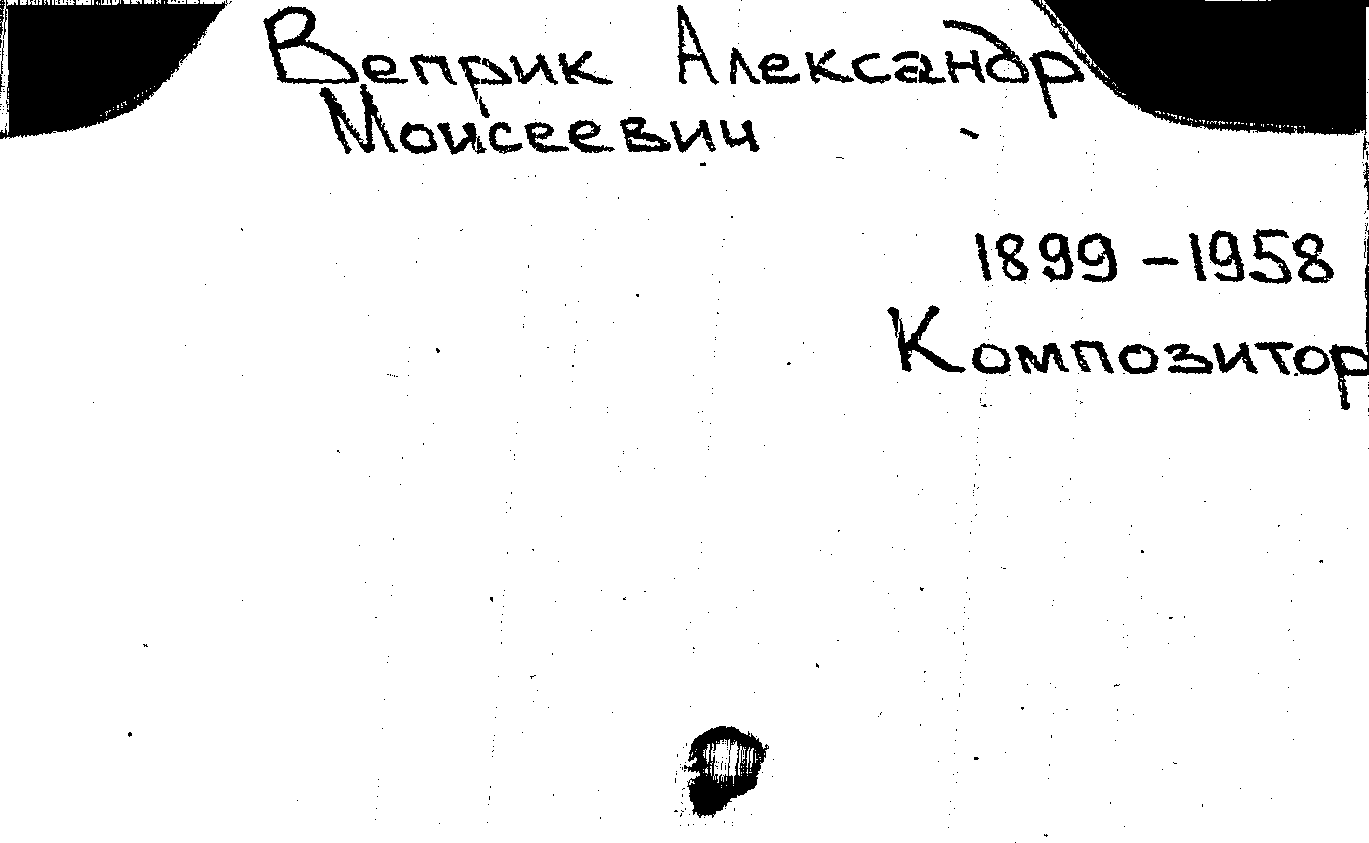 Веприк Александр
Моисеевич
1899-1958
Композитор